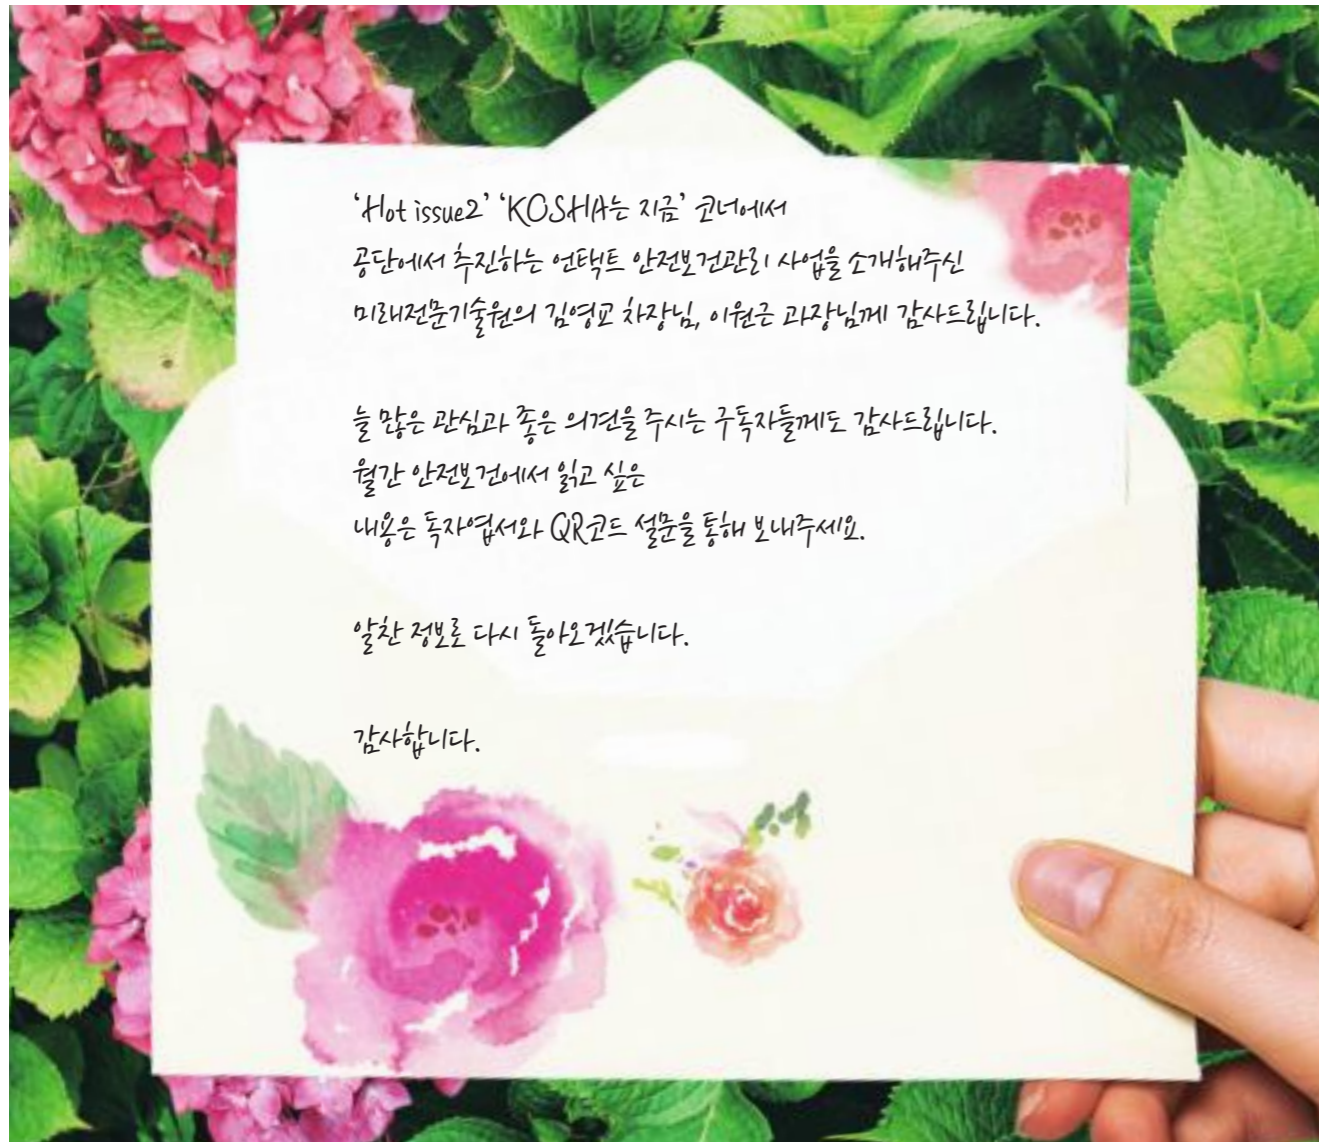 ‘Hot issue2’ ‘KOSHA는 지금’ 코너에서
공단에서 추진하는 언택트 안전보건관리 사업을 소개해주신
미래전문기술원의 김영교 차장님, 이원근 과장님께 감사드립니다.
늘 많은 관심과 좋은 의견을 주시는 구독자들께도 감사드립니다.
월간 안전보건에서 읽고 싶은
내용은 독자엽서와 QR코드 설문을 통해 보내주세요.
알찬 정보로 다시 돌아오겠습니다.
감사합니다.